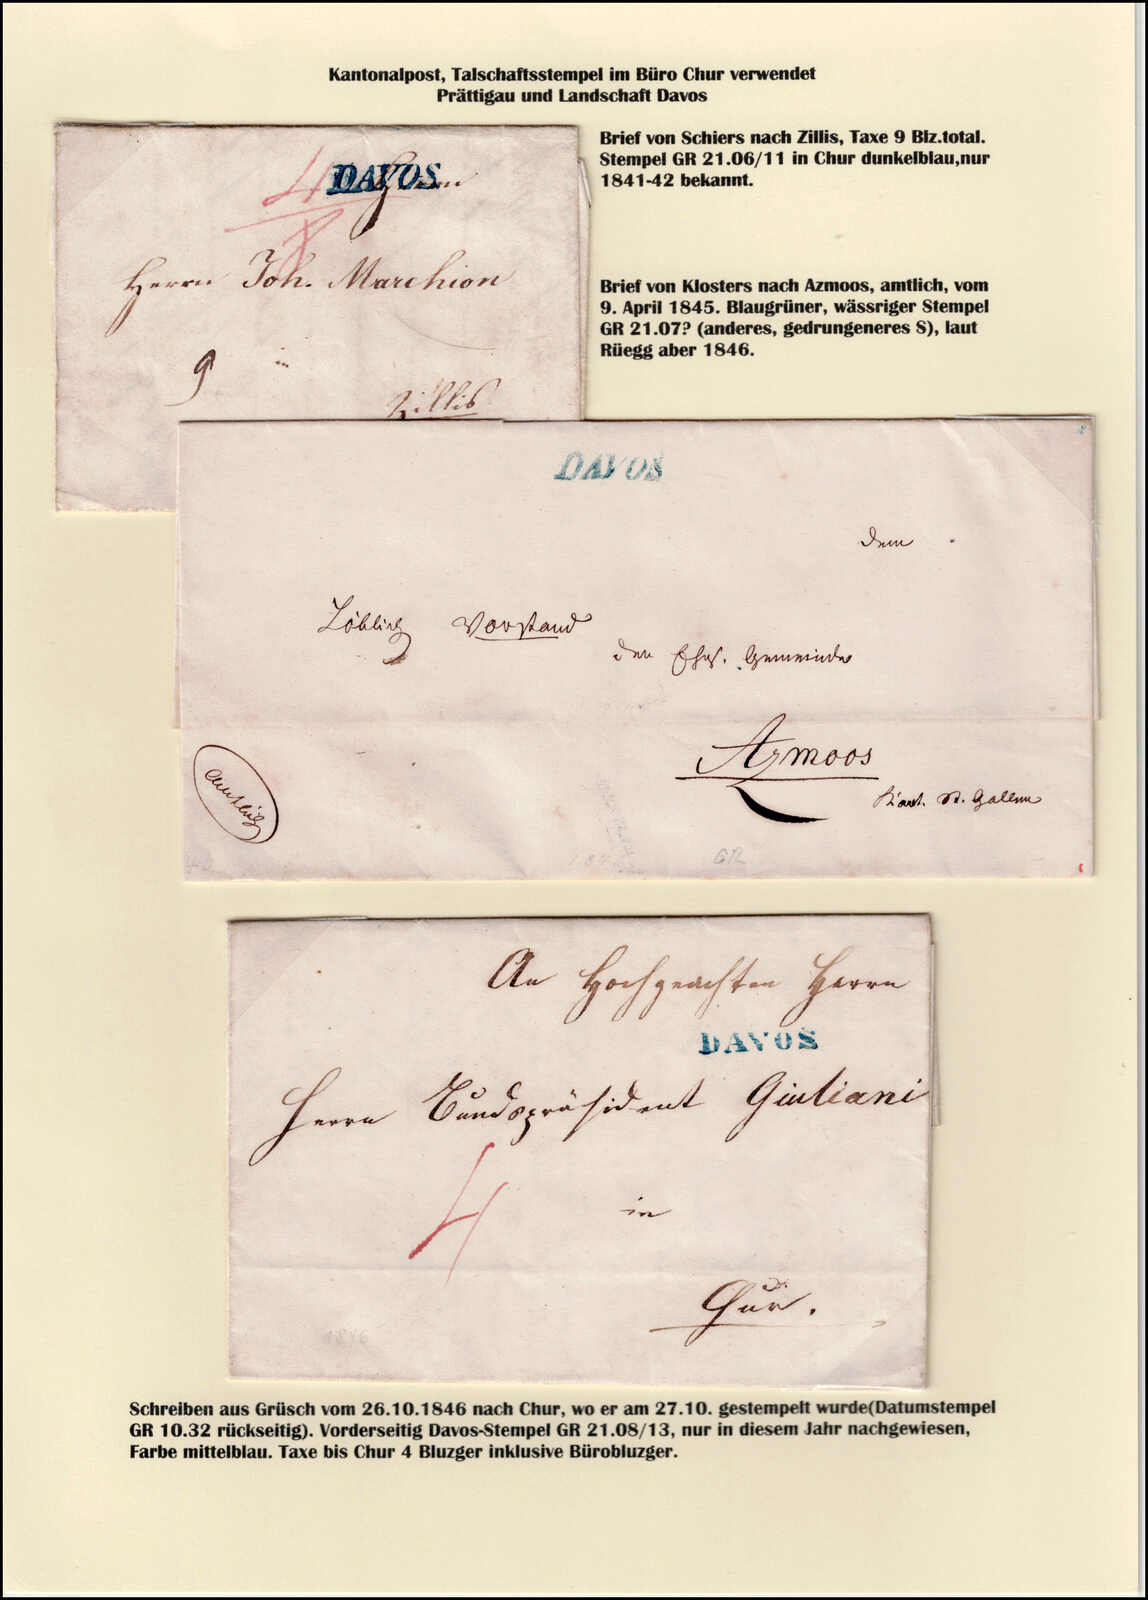 Kantonalpost, Talschaftsstempel im Büro Chur verwendet
Prättigau und Landschaft Davos
Brief von Schiers nach Zillis, Taxe 9 Blz.total.
Stempel GR 21.06/11 in Chur dunkelblau,nur
1841-42 bekannt.
Brief von Klosters nach Azmoos, amtlich, vom
9. April 1845. Blaugrüner, wässriger Stempel
GR 21.07? (anderes, gedrungeneres S), laut
Rüegg aber 1846.
DAVOS
4
Herrn Joh. Marchion
9 in
Zillis
DAVOS
dem
Löblich Vorstand
der Ehrs. Gemeinde
Azmoos
Kant. St. Gallen
Amtlich
GR
An Hochgeachten Herrn
DAVOS
Herrn Bundspräsident Giuliani
4
in
Chur.
1846
Schreiben aus Grüsch vom 26.10.1846 nach Chur, wo er am 27.10. gestempelt wurde(Datumstempel
GR 10.32 rückseitig). Vorderseitig Davos-Stempel GR 21.08/13, nur in diesem Jahr nachgewiesen,
Farbe mittelblau. Taxe bis Chur 4 Bluzger inklusive Bürobluzger.